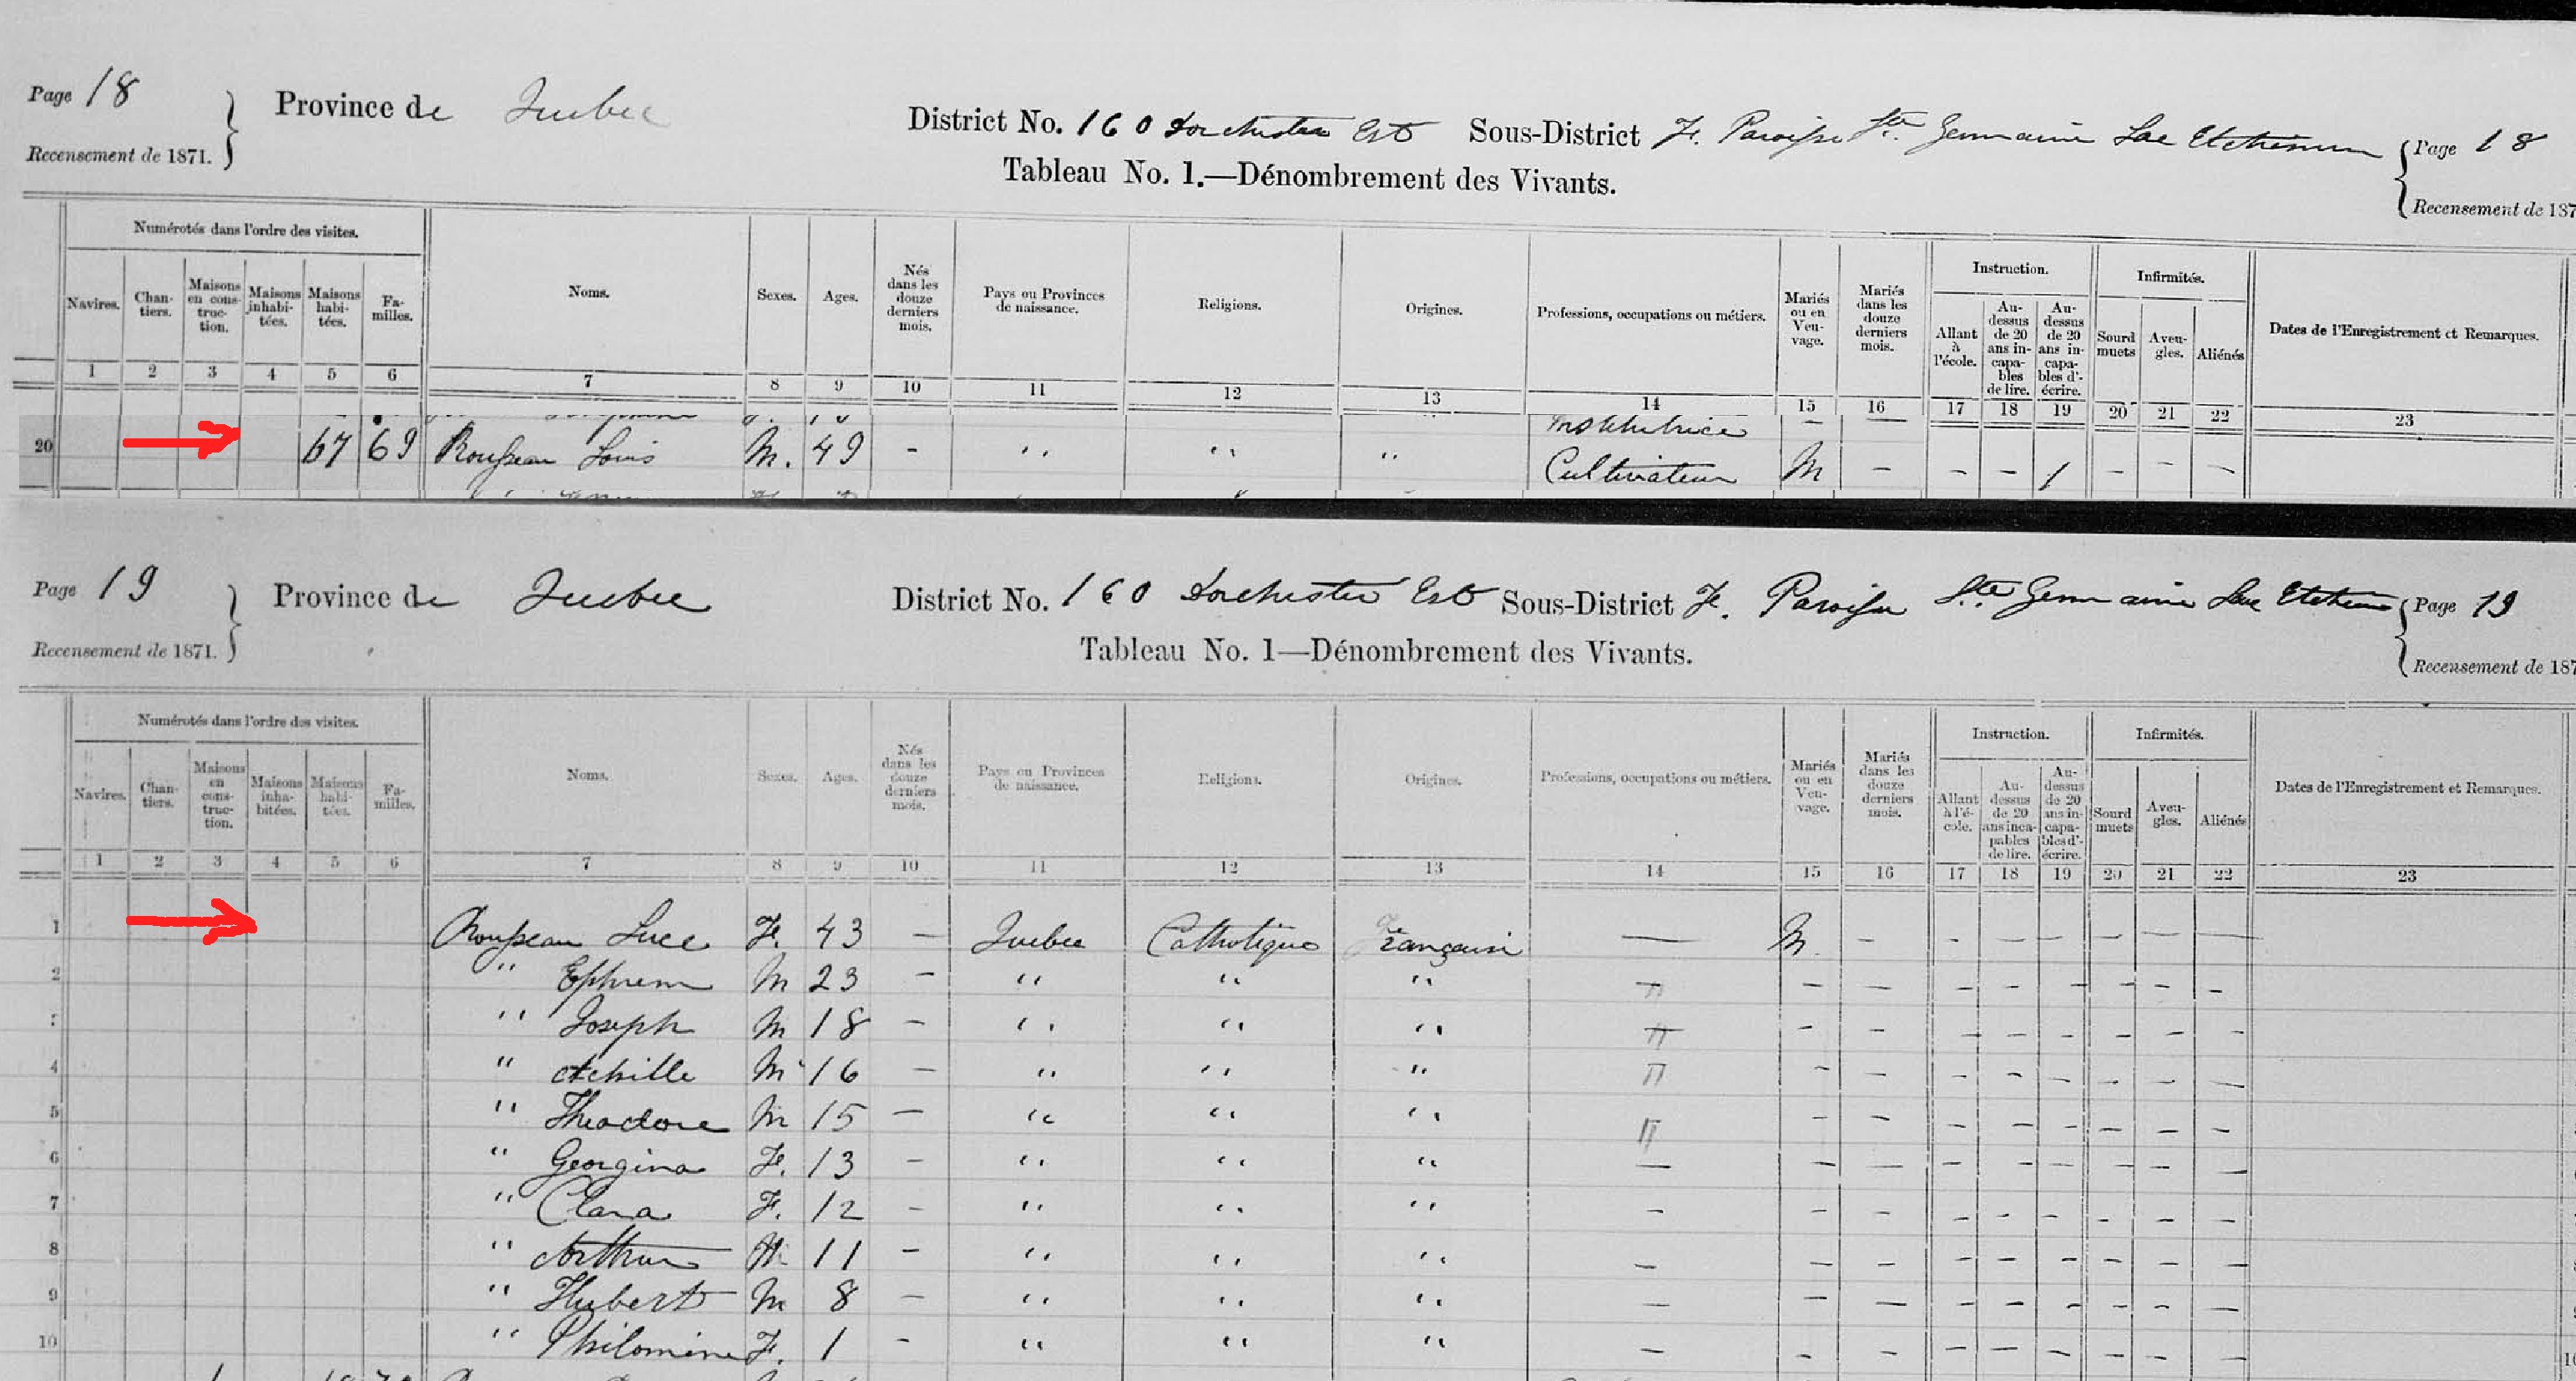 Page 18 } Province de Quebec District No. 160 Dorchester Est Sous-District F. Paroisse Ste Germaine Lac Etchemin { Page 18
Recensement de 1871. Recensement de 187
Tableau No. 1.—Dénombrement des Vivants.
Numérotés dans l'ordre des visites.
Navires. Chantiers. Maisons en construction. Maisons inhabitées. Maisons habitées. Familles. Noms. Sexes. Ages. Nés dans les douze derniers mois. Pays ou Provinces de naissance. Religions. Origines. Professions, occupations ou métiers. Mariés ou en Veuvage. Mariés dans les douze derniers mois. Instruction. Allant à l'école. Au-dessus de 20 ans incapables de lire. Au-dessus de 20 ans incapables d'écrire. Infirmités. Sourd muets Aveugles. Aliénés Dates de l'Enregistrement et Remarques.
1 2 3 4 5 6 7 8 9 10 11 12 13 14 15 16 17 18 19 20 21 22 23
Institutrice —
20 67 69 Rousseau Louis M. 49 - " " " Cultivateur M — — — 1 — — —
Page 19 } Province de Quebec District No. 160 Dorchester Est Sous-District F. Paroisse Ste Germaine Lac Etchemin { Page 19
Recensement de 1871. Recensement de 187
Tableau No. 1—Dénombrement des Vivants.
Numérotés dans l'ordre des visites.
Navires. Chantiers. Maisons en construction. Maisons inhabitées. Maisons habitées. Familles. Noms. Sexes. Ages. Nés dans les douze derniers mois. Pays ou Provinces de naissance. Religions. Origines. Professions, occupations ou métiers. Mariés ou en Veuvage. Mariés dans les douze derniers mois. Instruction. Allant à l'école. Au-dessus de 20 ans incapables de lire. Au-dessus de 20 ans incapables d'écrire. Infirmités. Sourd muets Aveugles. Aliénés Dates de l'Enregistrement et Remarques.
1 2 3 4 5 6 7 8 9 10 11 12 13 14 15 16 17 18 19 20 21 22 23
1 Rousseau Luce F. 43 — Quebec Catholique Française — M. — — — — — — —
2 " Ephrem M 23 — " " " — — — — — — — —
3 " Joseph M 18 — " " " — — — — — — — —
4 " Achille M 16 — " " " — — — — — — — —
5 " Theodore M 15 — " " " — — — — — — — —
6 " Georgina F. 13 — " " " — — — — — — — — —
7 " Clara F. 12 — " " " — — — — — — — — —
8 " Arthur M 11 — " " " — — — — — — — — —
9 " Hubert M 8 — " " " — — — — — — — — —
10 " Philomine F. 1 - " " " — — — — — — — — —